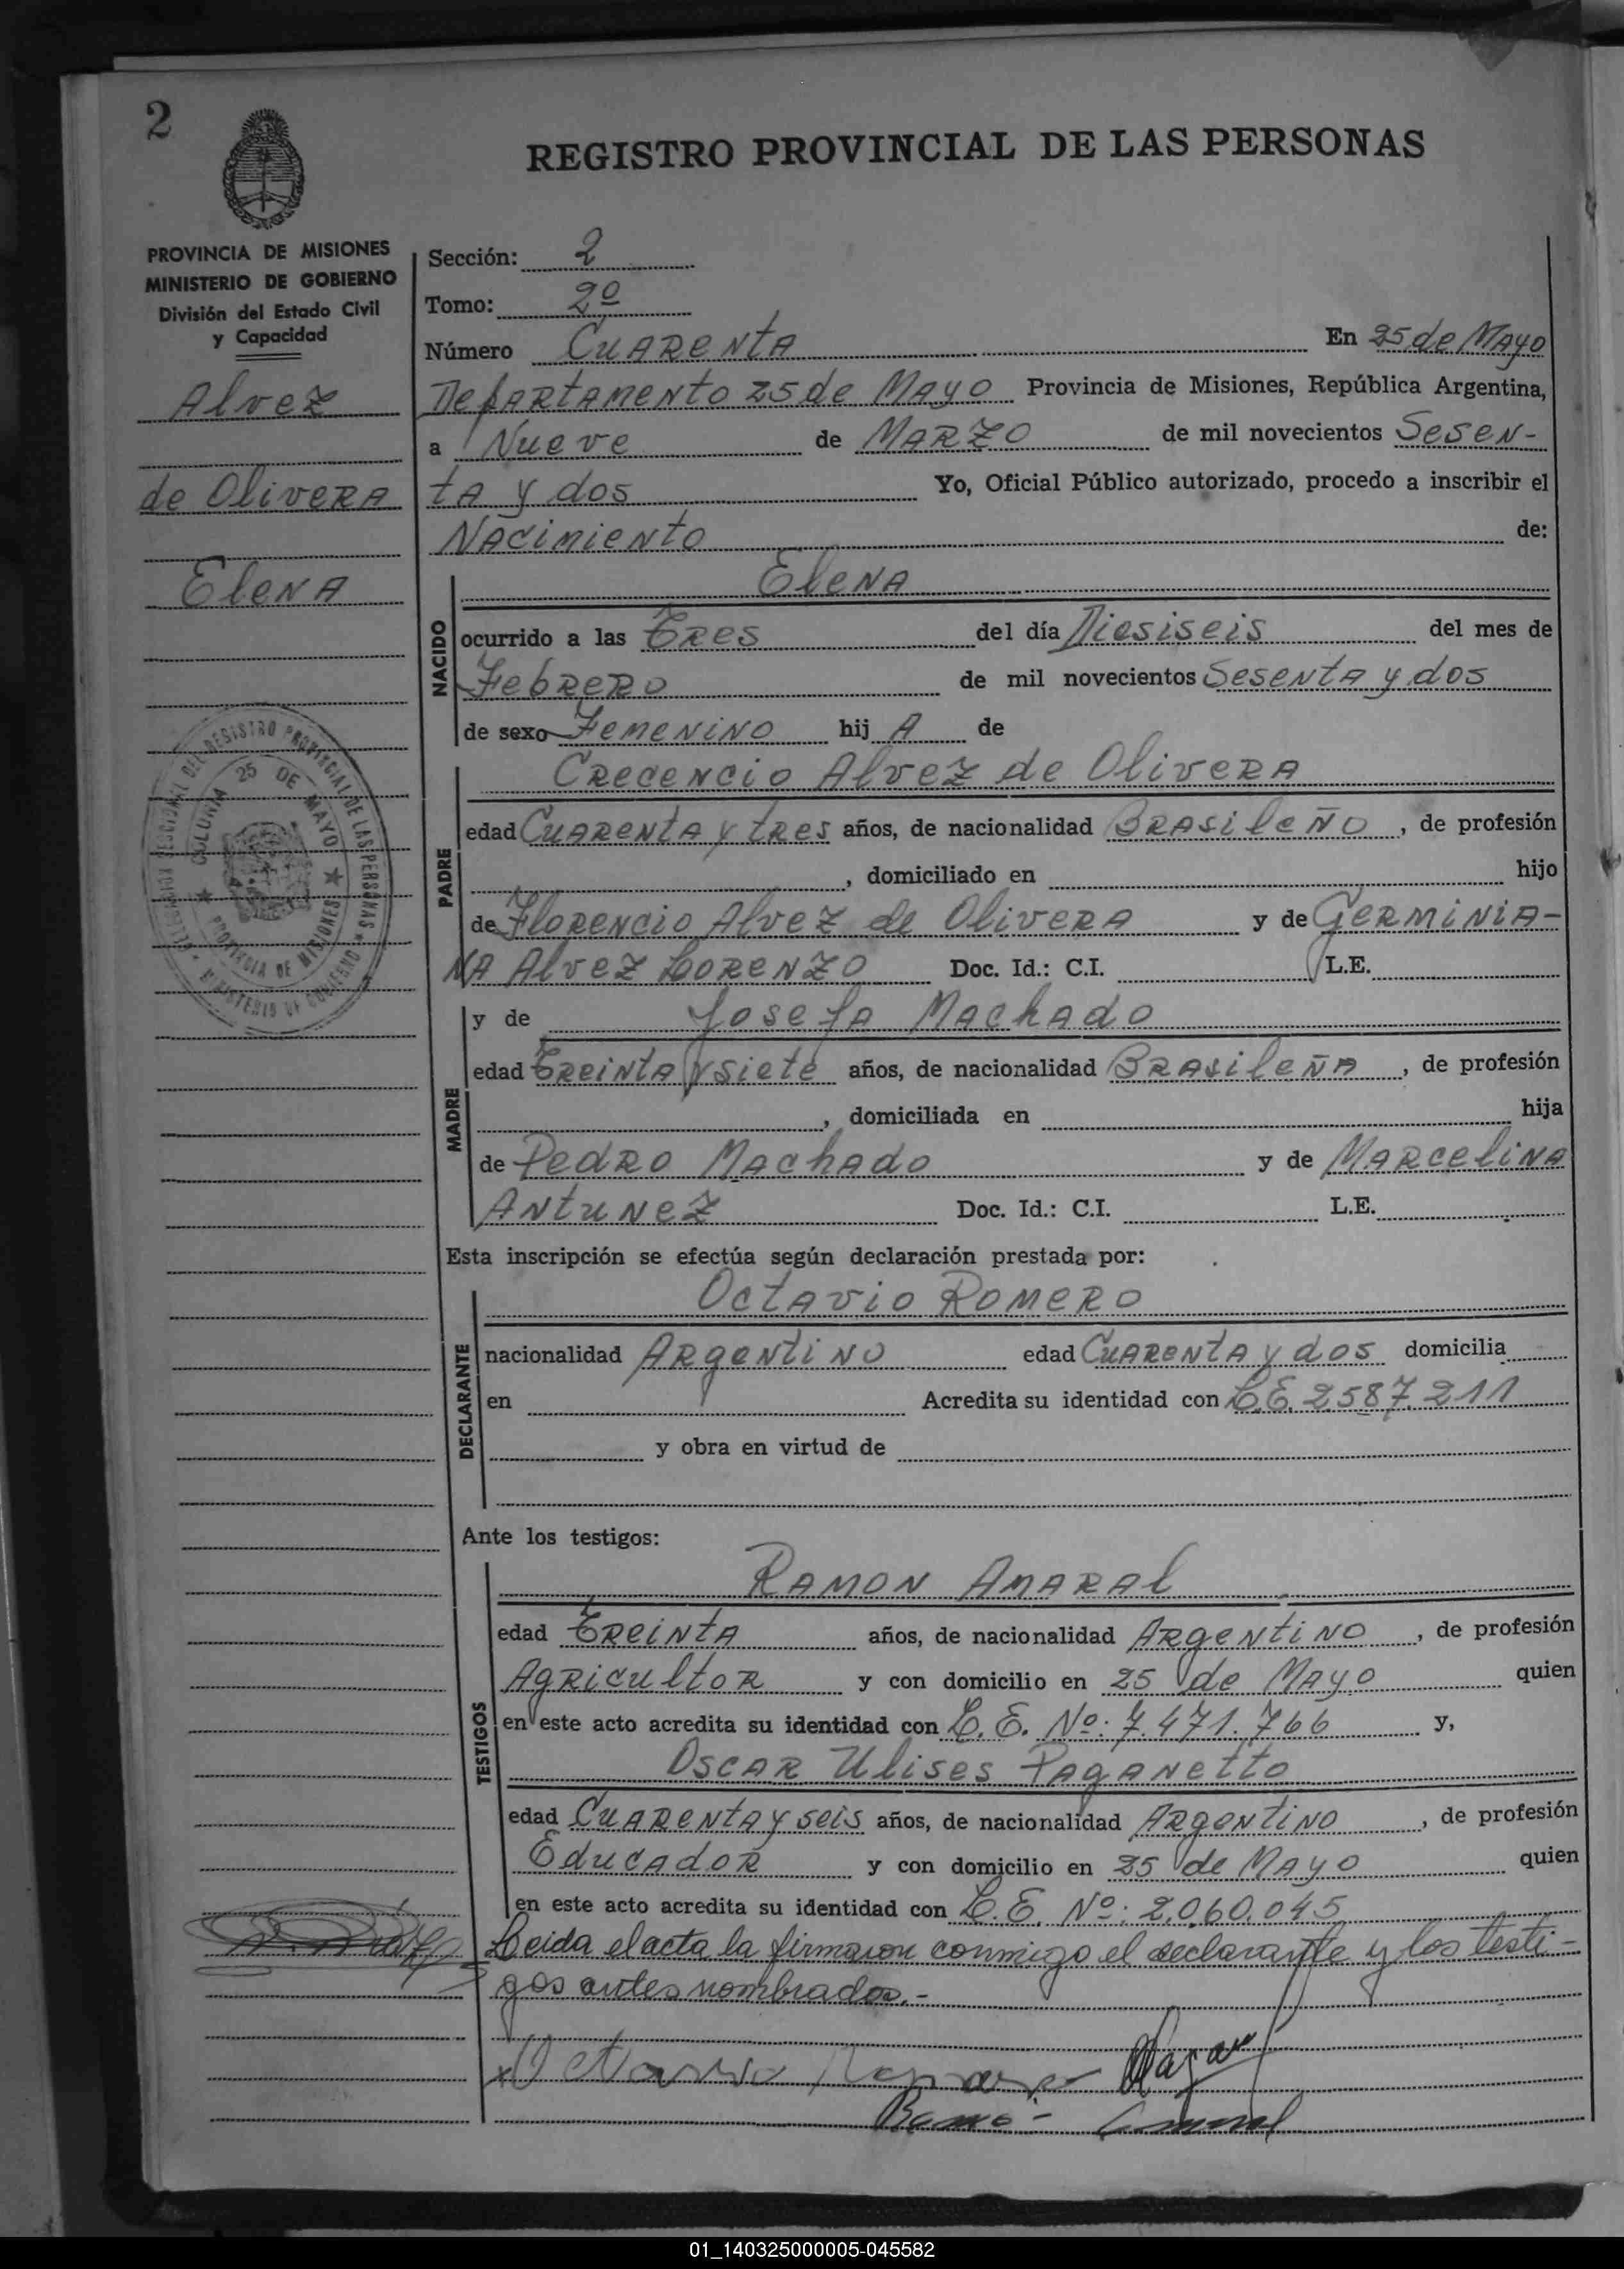 2
REGISTRO PROVINCIAL DE LAS PERSONAS
PROVINCIA DE MISIONES
MINISTERIO DE GOBIERNO
División del Estado Civil
y Capacidad
Alvez
de Olivera
Elena
DELEGACION SECCIONAL DEL REGISTRO PROVINCIAL DE LAS PERSONAS
MINISTERIO DE GOBIERNO
COLONIA 25 DE MAYO
PROVINCIA DE MISIONES
Sección: 2
Tomo: 2º
Número Cuarenta En 25 de Mayo
Departamento 25 de Mayo Provincia de Misiones, República Argentina,
a Nueve de Marzo de mil novecientos Sesen-
ta y dos Yo, Oficial Público autorizado, procedo a inscribir el
Nacimiento de:
NACIDO
Elena
ocurrido a las Tres del día Diesiseis del mes de
Febrero de mil novecientos Sesenta y dos
de sexo Femenino hij A de
PADRE
Crecencio Alvez de Olivera
edad Cuarenta y tres años, de nacionalidad Brasileño, de profesión
, domiciliado en hijo
de Florencio Alvez de Olivera y de Germinia-
na Alvez Lorenzo Doc. Id.: C.I. L.E.
MADRE
y de Josefa Machado
edad Treinta y siete años, de nacionalidad Brasileña, de profesión
, domiciliada en hija
de Pedro Machado y de Marcelina
Antunez Doc. Id.: C.I. L.E.
Esta inscripción se efectúa según declaración prestada por:
DECLARANTE
Octavio Romero
nacionalidad Argentino edad Cuarenta y dos domicilia
en Acredita su identidad con L.E. 2.587.211
y obra en virtud de
Ante los testigos:
TESTIGOS
Ramon Amaral
edad Treinta años, de nacionalidad Argentino, de profesión
Agricultor y con domicilio en 25 de Mayo quien
en este acto acredita su identidad con L.E. Nº: 7.471.766 y,
Oscar Ulises Paganetto
edad Cuarenta y seis años, de nacionalidad Argentino, de profesión
Educador y con domicilio en 25 de Mayo quien
en este acto acredita su identidad con L.E. Nº: 2.060.045
Leida el acta la firmaron conmigo el declarante y los testi-
gos antes nombrados.-
Octavio Romero
01_140325000005-045582